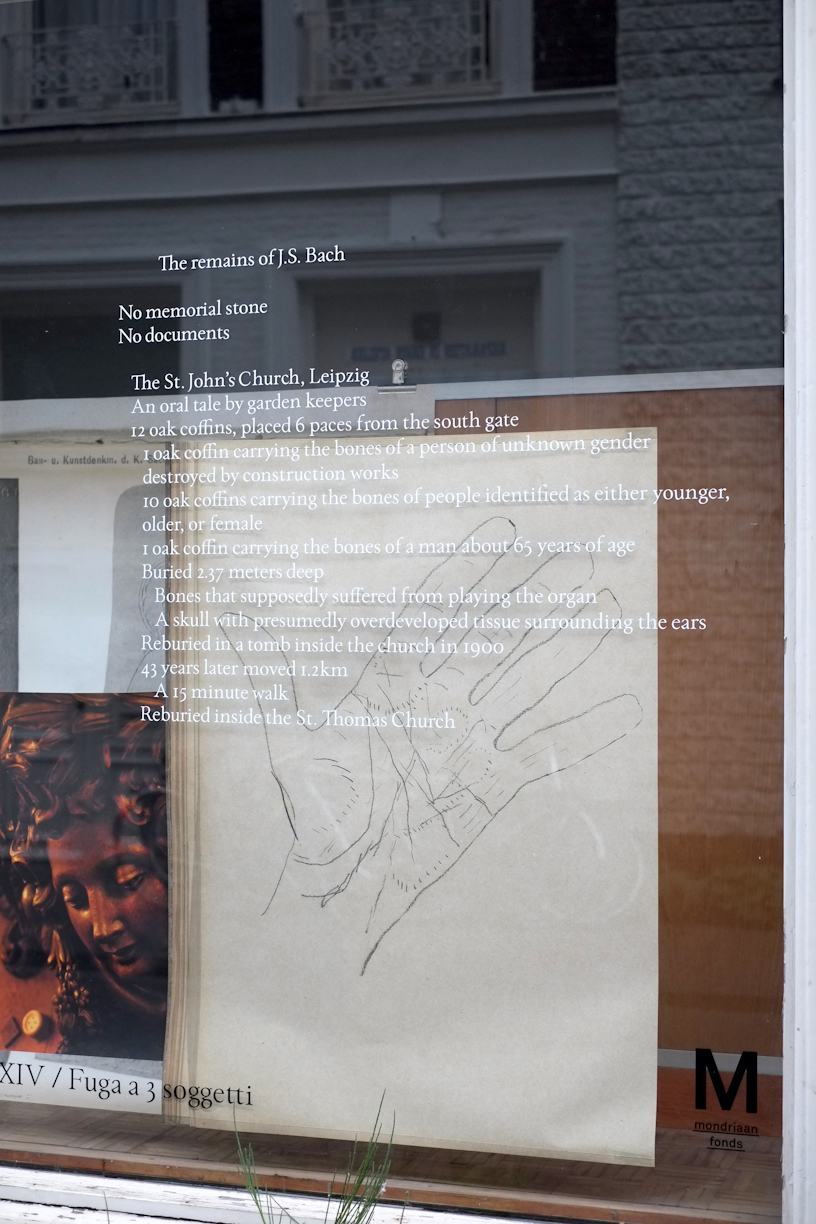 The remains of J.S. Bach
No memorial stone
No documents
The St. John's Church, Leipzig
An oral tale by garden keepers
12 oak coffins, placed 6 paces from the south gate
1 oak coffin carrying the bones of a person of unknown gender
destroyed by construction works
10 oak coffins carrying the bones of people identified as either younger,
older, or female
1 oak coffin carrying the bones of a man about 65 years of age
Buried 2.37 meters deep
Bones that supposedly suffered from playing the organ
A skull with presumedly overdeveloped tissue surrounding the ears
Reburied in a tomb inside the church in 1900
43 years later moved 1.2km
A 15 minute walk
Reburied inside the St. Thomas Church
Bau- u. Kunstdenkm. d. K.
XIV / Fuga a 3 soggetti
M
mondriaan
fonds